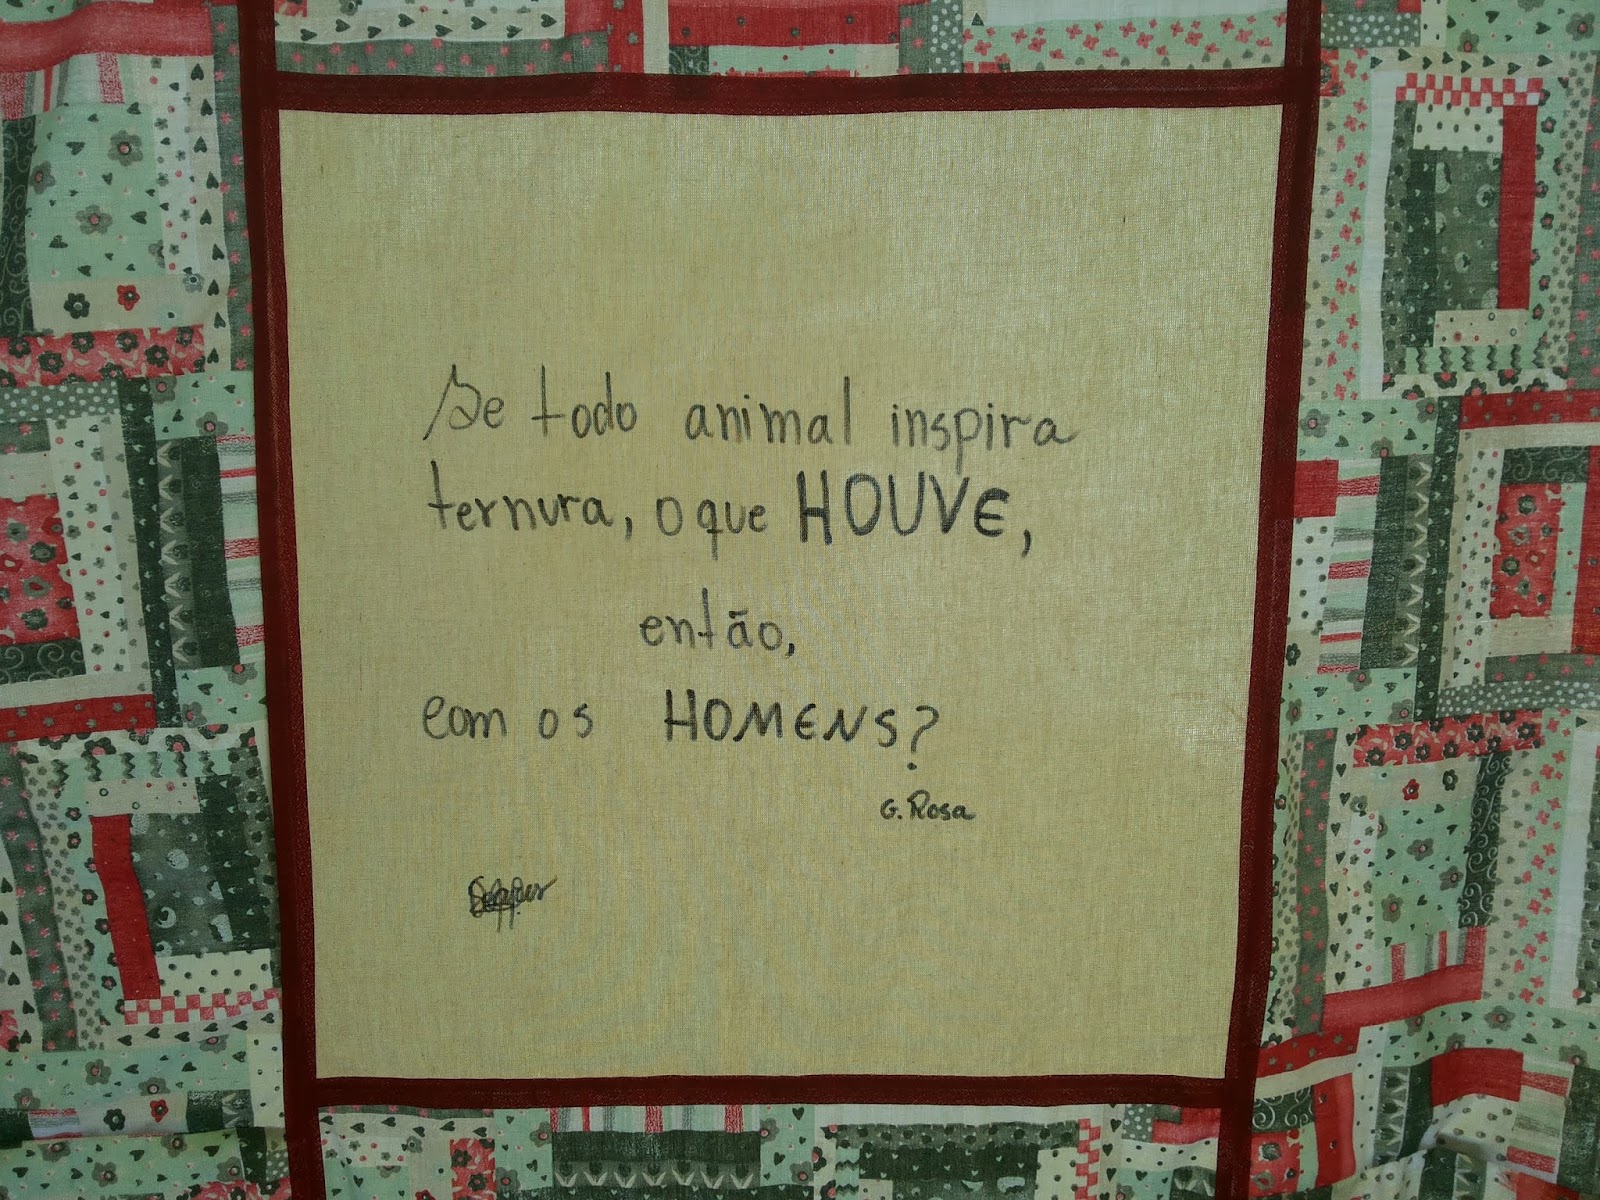 Se todo animal inspira
ternura, o que HOUVE,
então,
com os HOMENS?
G. Rosa